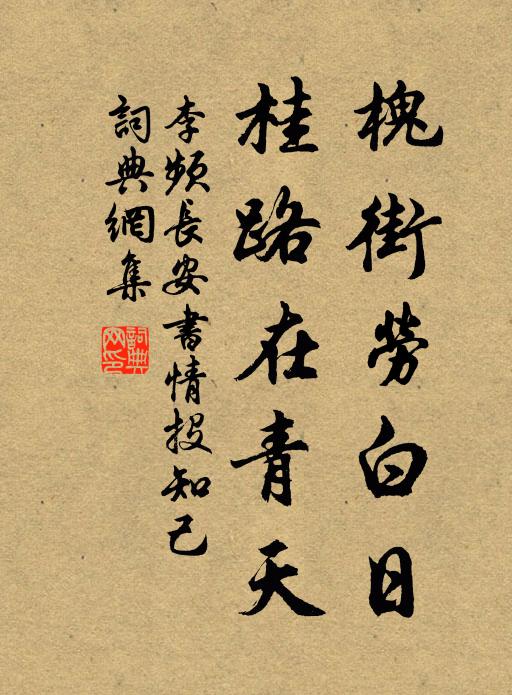 槐街勞白日
桂路在青天
李頻長安書情投知己
詞典網集
詞典网印